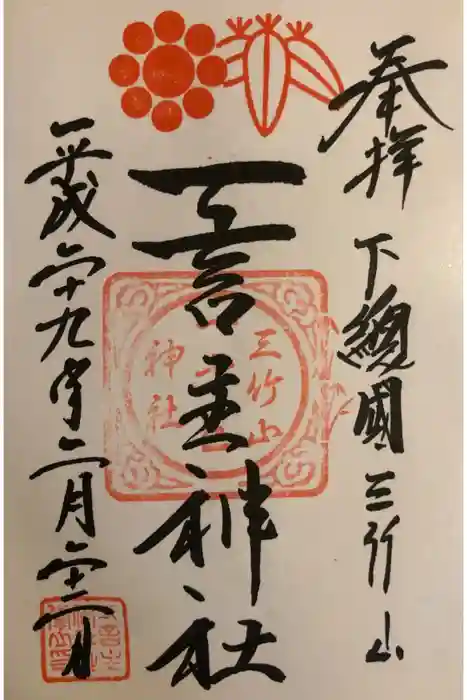 奉拝
下總國三竹山
一言主神社
三竹山
神社
平成二十九年二月二十二日